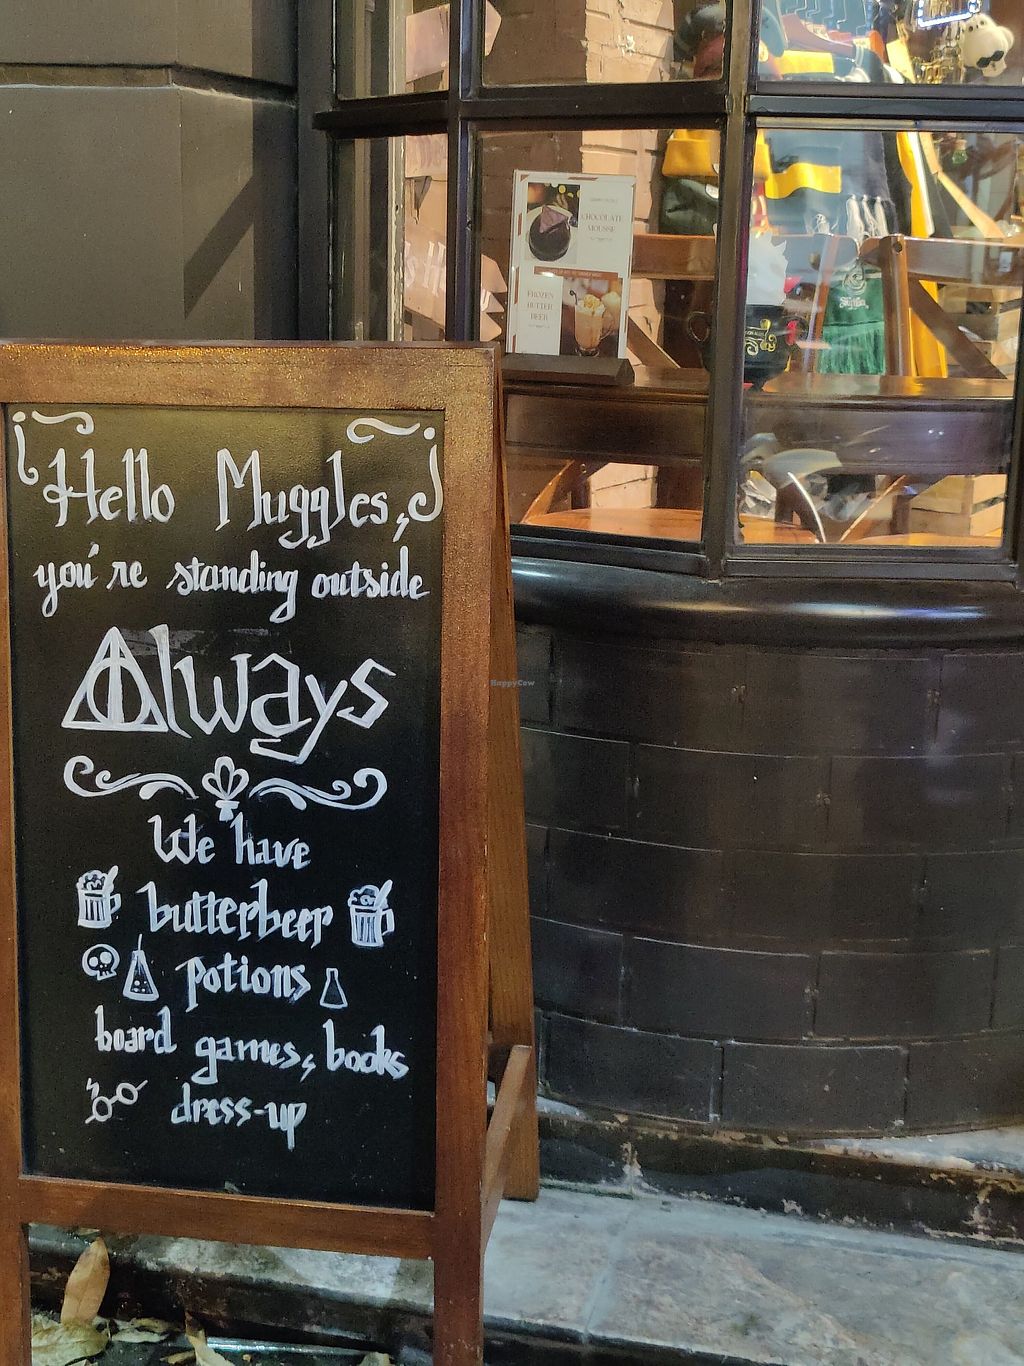 Hello Muggles,
you're standing outside
Always
We have
butterbeer
potions
board games, books
dress-up
CHOCOLATE
MOUSSE
FROZEN
BUTTER
BEER
Slytherin
HappyCow